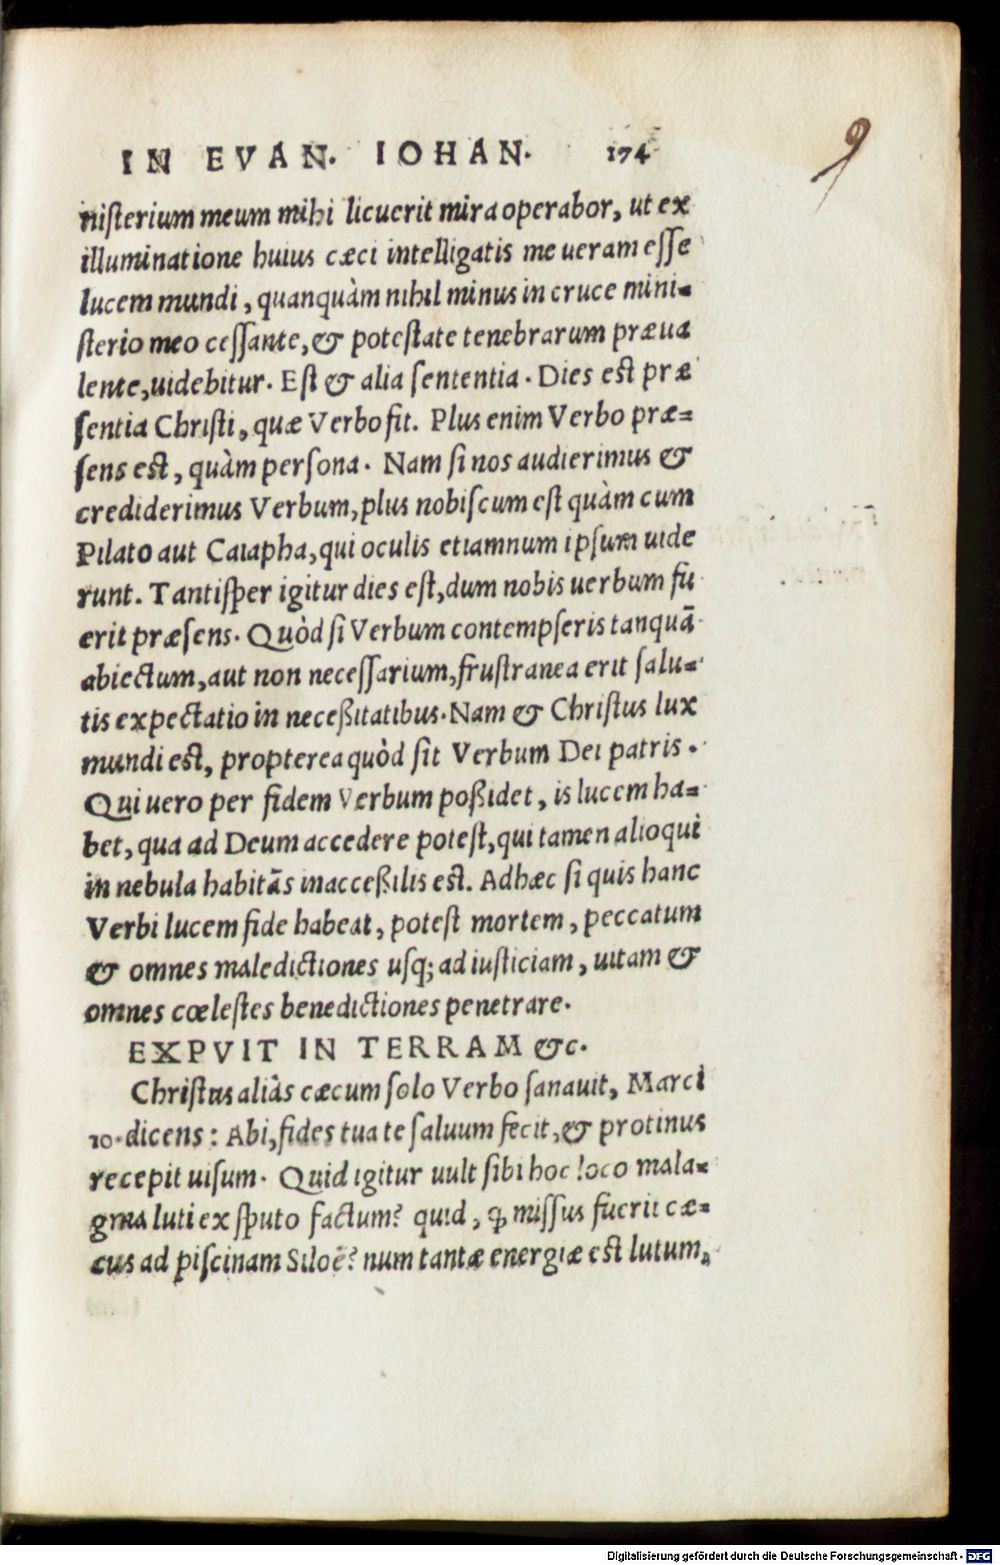 IN EVAN. IOHAN. 174
9
nisterium meum mihi licuerit mira operabor, ut ex
illuminatione huius cæci intelligatis me ueram esse
lucem mundi, quanquàm nihil minus in cruce mini-
sterio meo cessante, & potestate tenebrarum præua
lente, uidebitur. Est & alia sententia. Dies est præ
sentia Christi, quæ Verbo fit. Plus enim Verbo præ-
sens est, quàm persona. Nam si nos audierimus &
crediderimus Verbum, plus nobiscum est quàm cum
Pilato aut Caiapha, qui oculis etiamnum ipsum uide
runt. Tantisper igitur dies est, dum nobis uerbum fu
erit præsens. Quòd si Verbum contempseris tanquã
abiectum, aut non necessarium, frustranea erit salu-
tis expectatio in neceßitatibus. Nam & Christus lux
mundi est, propterea quòd sit Verbum Dei patris.
Qui uero per fidem Verbum poßidet, is lucem ha-
bet, qua ad Deum accedere potest, qui tamen alioqui
in nebula habitãs inacceßilis est. Adhæc si quis hanc
Verbi lucem fide habeat, potest mortem, peccatum
& omnes maledictiones usq; ad iusticiam, uitam &
omnes cœlestes benedictiones penetrare.
EXPVIT IN TERRAM &c.
Christus aliàs cæcum solo Verbo sanauit, Marci
10. dicens: Abi, fides tua te saluum fecit, & protinus
recepit uisum. Quid igitur uult sibi hoc loco mala-
gma luti ex sputo factum? quid, ꝙ missus fuerit cæ-
cus ad piscinam Siloë? num tantæ energiæ est lutum,
Digitalisierung gefördert durch die Deutsche Forschungsgemeinschaft - DFG